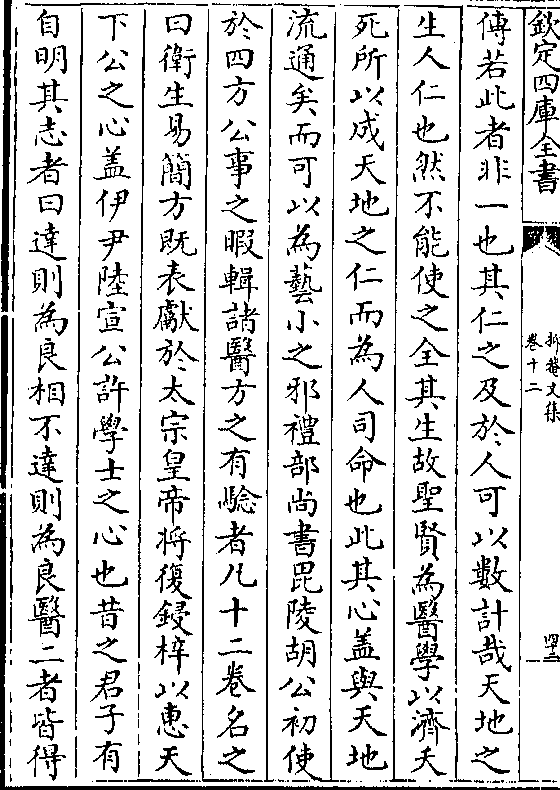 欽定四庫全書
抑菴文集
卷十二
傳若此者非一也其仁之及於人可以數計哉天地之
生人仁也然不能使之全其生故聖賢為醫學以濟夭
死所以成天地之仁而為人司命也此其心盖與天地
流通矣而可以為藝小之邪禮部尚書毘陵胡公初使
於四方公事之暇輯諸醫方之有驗者凡十二卷名之
曰衛生易簡方既表獻於太宗皇帝將復鋟梓以惠天
下公之心盖伊尹陸宣公許學士之心也昔之君子有
自明其志者曰達則為良相不達則為良醫二者皆得